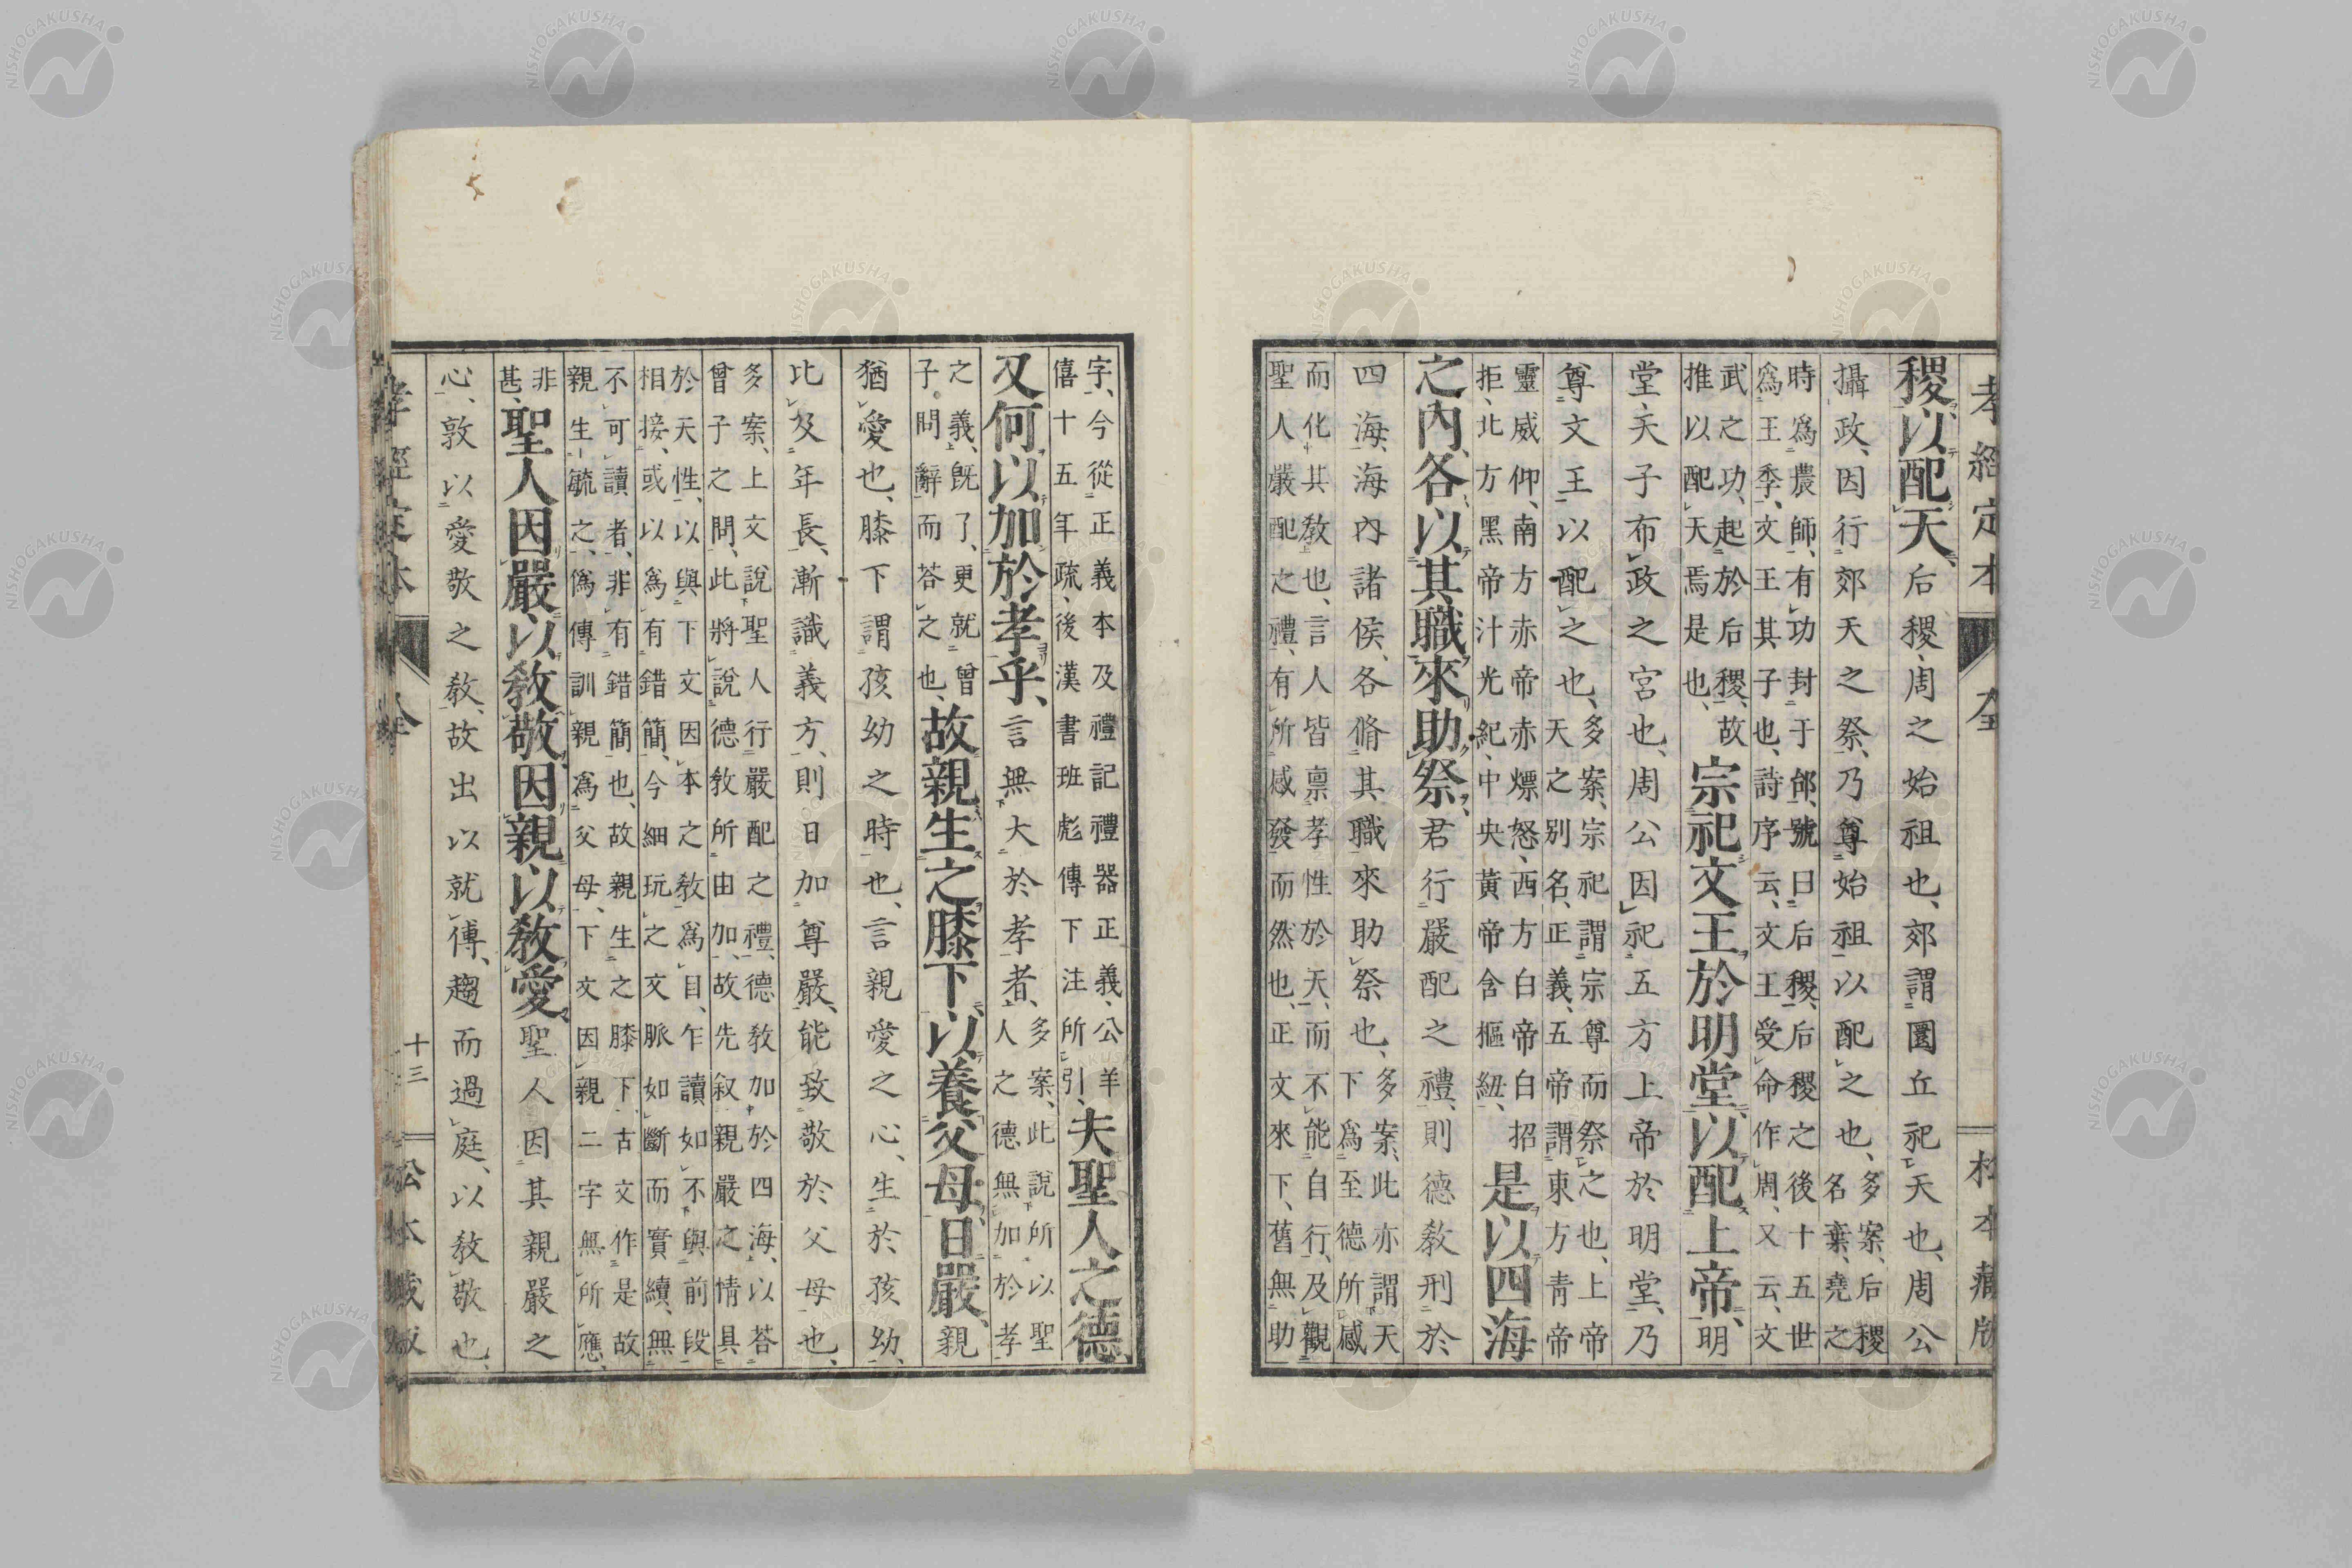 孝經定本 全 松本藏版
稷以配天、后稷、周之始祖也、郊謂圜丘祀天也、周公
攝政、因行郊天之祭、乃尊始祖以配之也、多案、后稷
名棄、堯之
時爲農師、有功封于邰、號曰后稷、后稷之後十五世
爲王季、文王其子也、詩序云、文王受命作周、又云、文
武之功、起於后稷、故
推以配天焉是也、宗祀文王於明堂、以配上帝、明
堂、天子布政之宮也、周公因祀五方上帝於明堂、乃
尊文王以配之也、多案、宗祀謂宗尊而祭之也、上帝
天之別名、正義、五帝謂東方青帝
靈威仰、南方赤帝赤熛怒、西方白帝白招
拒、北方黑帝汁光紀、中央黃帝含樞紐、是以四海
之內、各以其職來助祭、君行嚴配之禮、則德敎刑於
四海、海內諸侯、各脩其職來助祭也、多案、此亦謂天
下爲至德所感
而化其敎也、言人皆禀孝性於天、而不能自行、及觀
聖人嚴配之禮、有所感發而然也、正文來下、舊無助
字、今從正義本及禮記禮器正義、公羊
僖十五年疏、後漢書班彪傳下注所引、夫聖人之德、
又何以加於孝乎、言無大於孝者、多案、此說所以聖
人之德無加於孝
之義、既了、更就曾
子問辭而荅之也、故親生之膝下、以養父母日嚴、親
猶愛也、膝下謂孩幼之時也、言親愛之心、生於孩幼、
比及年長、漸識義方、則日加尊嚴、能致敬於父母也、
多案、上文說聖人行嚴配之禮、德敎加於四海、以荅
曾子之問、此將說德敎所由加、故先叙親嚴之情具
於天性、以與下文因本之敎爲目、乍讀如不與前段
相接、或以爲有錯簡、今細玩之文脈如斷而實續、無
不可讀者、非有錯簡也、故親生之膝下、古文作是故
親生毓之、僞傳訓親爲父母、下文因親二字無所應、
非
甚、聖人因嚴以敎敬、因親以敎愛、聖人因其親嚴之
心、敦以愛敬之敎、故出以就傅、趨而過庭、以敎敬也、
孝經定本 全 十三 松本藏版